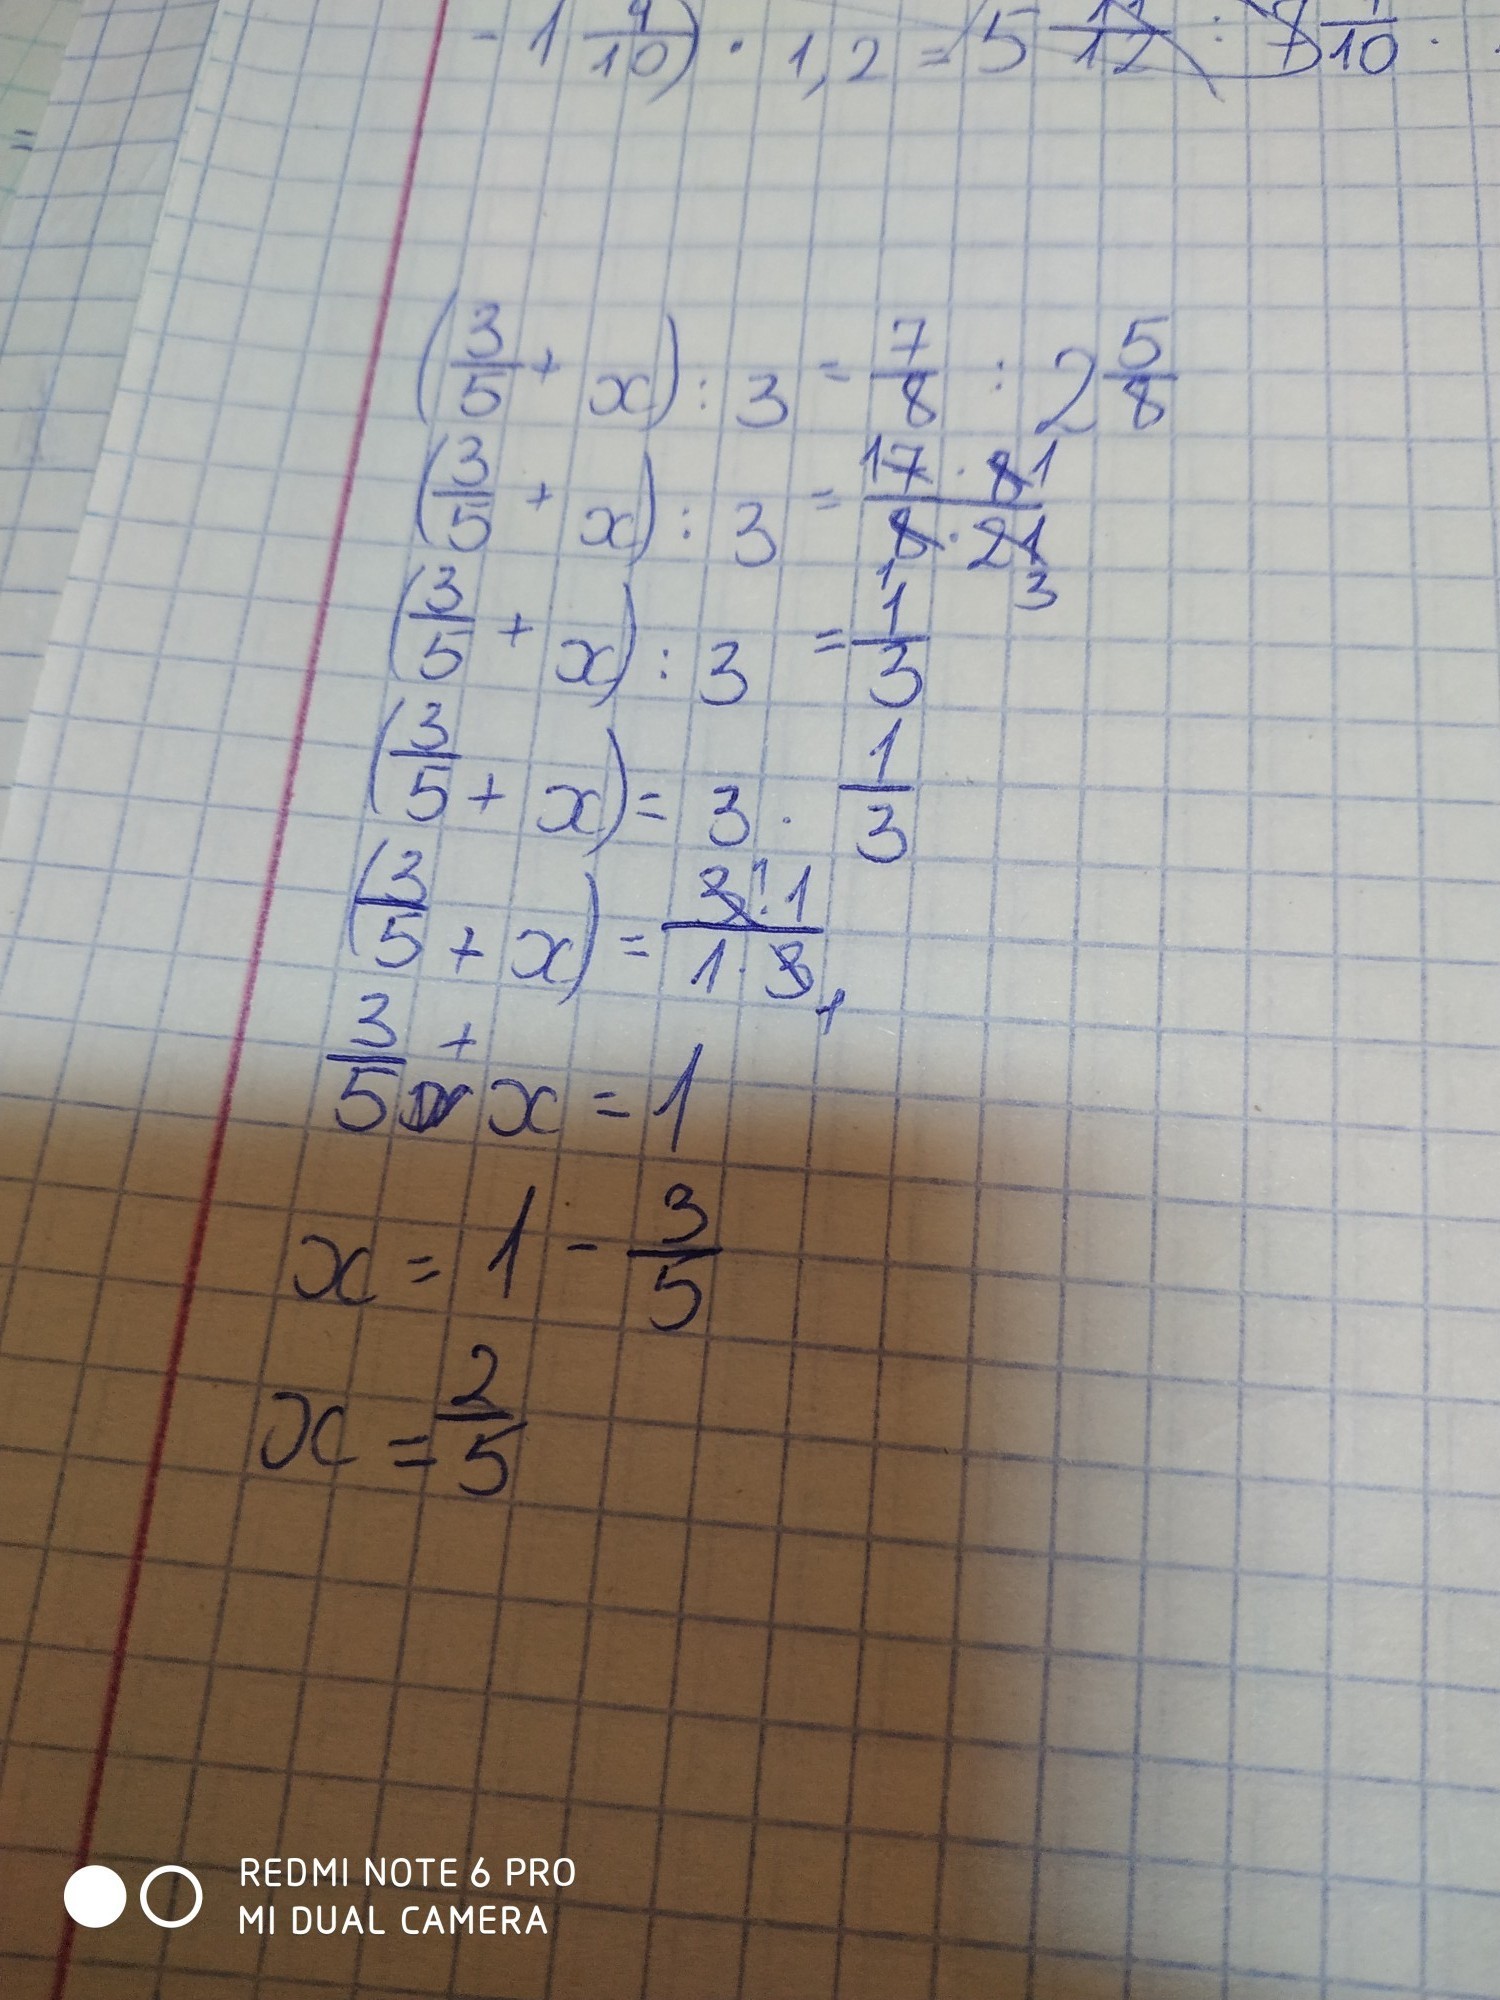 - 1 9/10) · 1,2 = 5 11/12 : 7 1/10 ·
(3/5 + x) : 3 = 7/8 : 2 5/8
(3/5 + x) : 3 = 17 · 81 / 8 · 21 1 3
(3/5 + x) : 3 = 1/3
(3/5 + x) = 3 · 1/3
(3/5 + x) = 3 1 · 1 / 1 · 3 1
3/5 + x = 1
x = 1 - 3/5
x = 2/5
REDMI NOTE 6 PRO
MI DUAL CAMERA